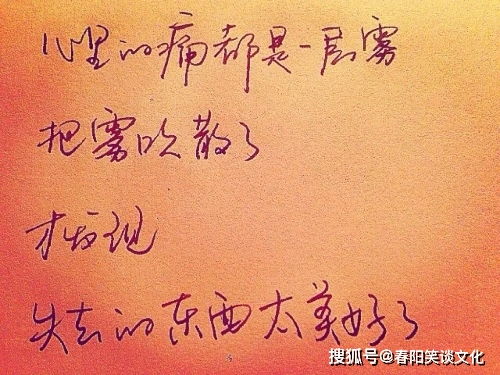 心里的痛都是一层雾
把雾吹散了
才发现
失去的东西太美好了
搜狐号@春阳笑谈文化